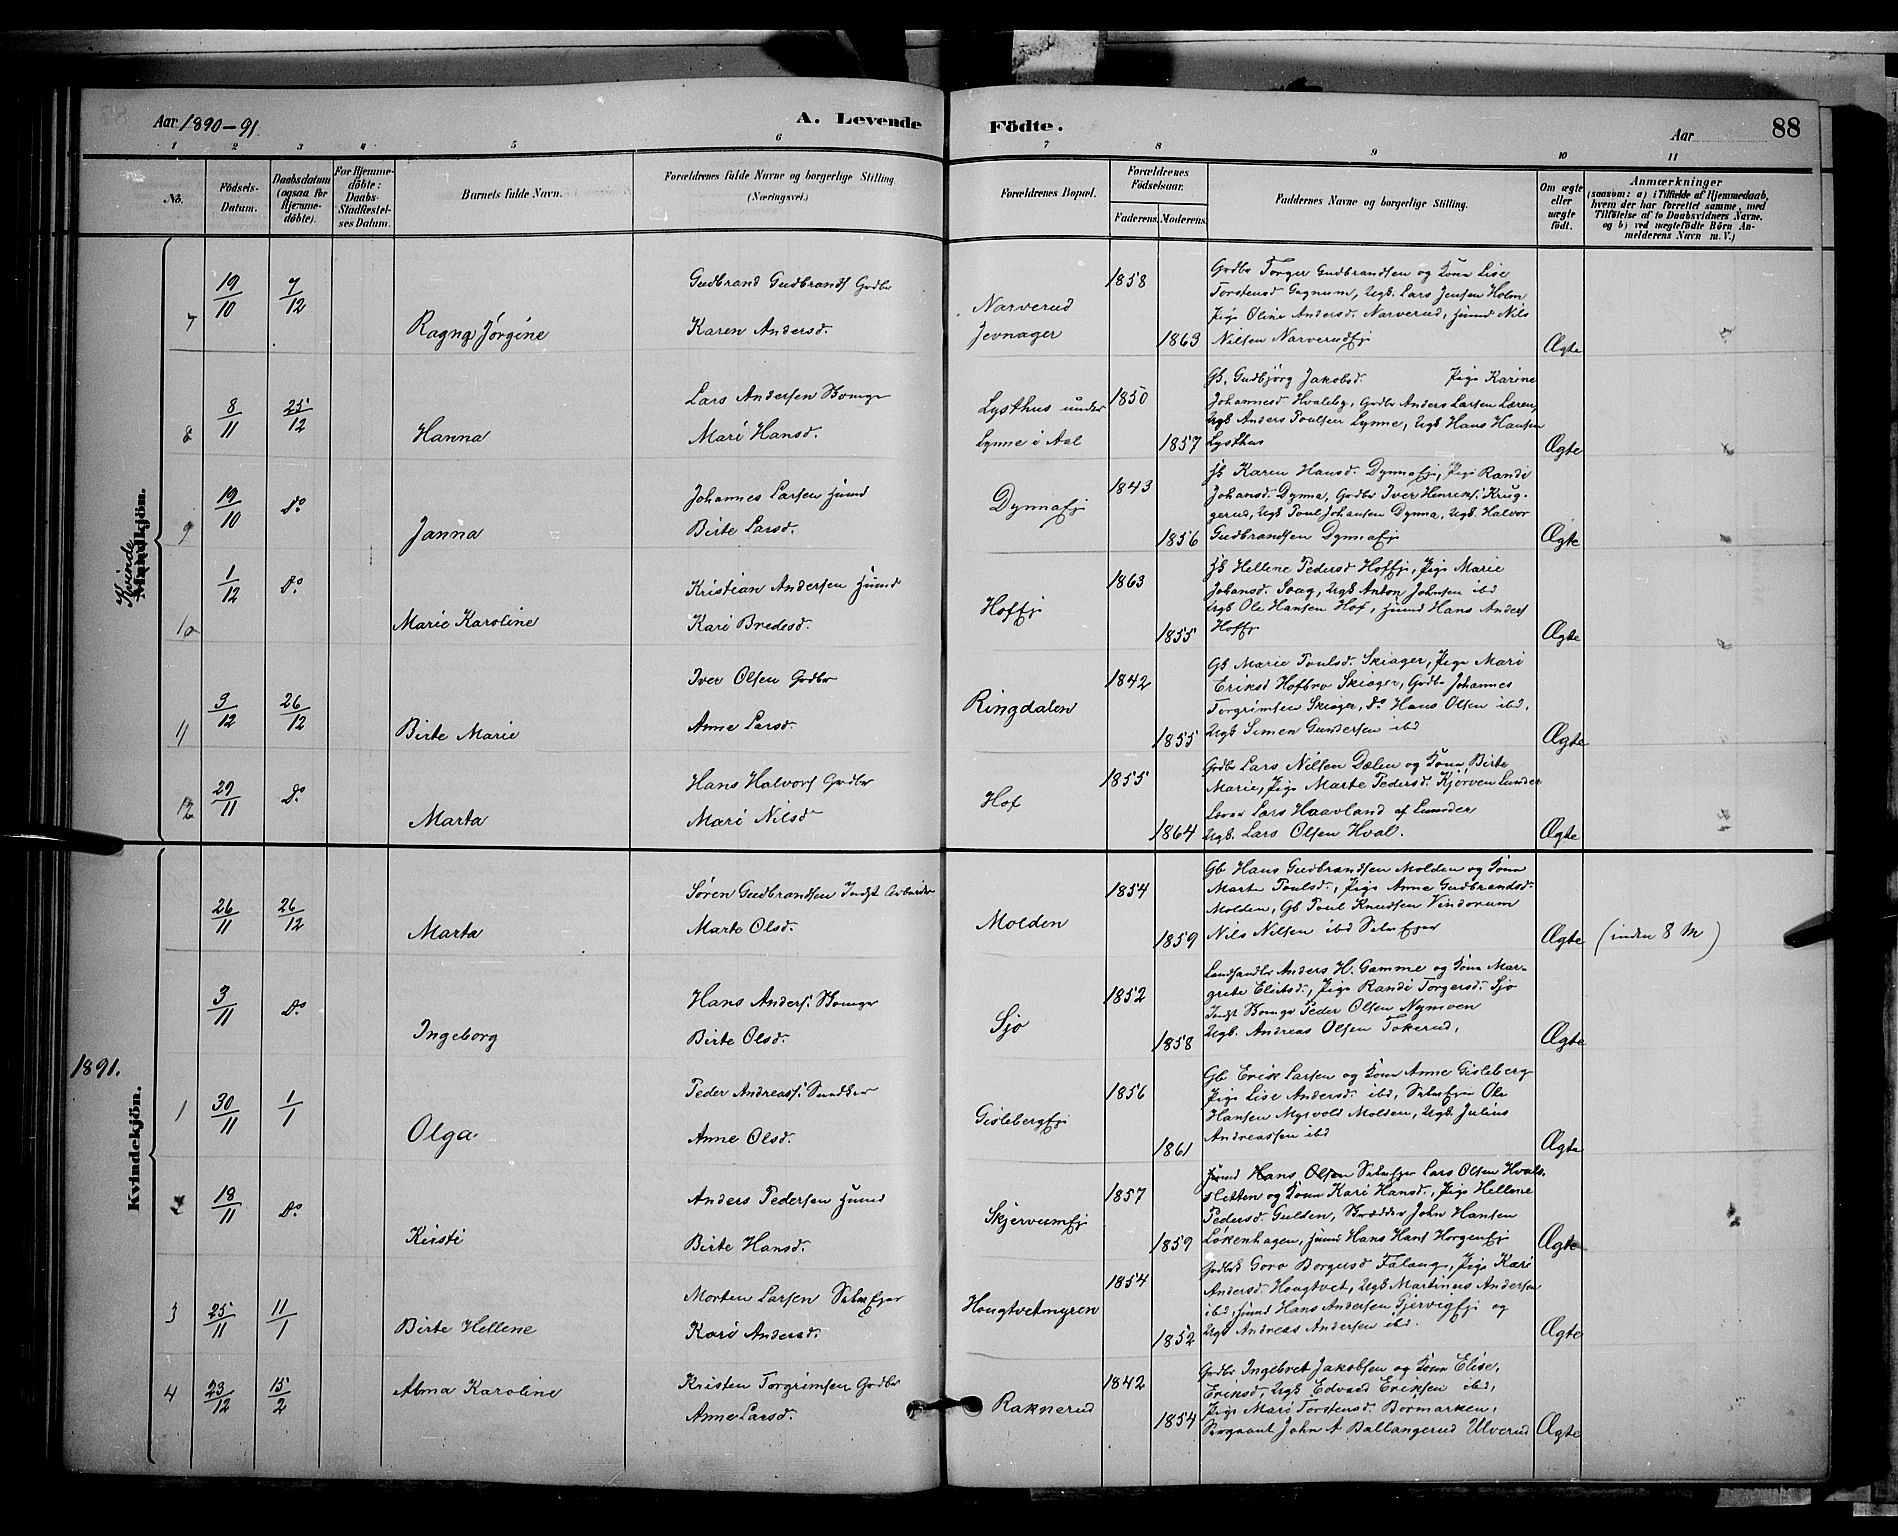 Aar 1890-91.
A. Levende Födte.
Aar 88
1 2 3 4 5 6 7 8 9 10 11
No.
Födsels-Datum.
Daabsdatum (ogsaa for Hjemmedöbte).
For Hjemmedöbte: Daabs-Stadfæstelses Datum.
Barnets fulde Navn.
Forældrenes fulde Navne og borgerlige Stilling. (Næringsvei.)
Forældrenes Bopæl.
Forældrenes Födselsaar.
Faderens. Moderens.
Faddernes Navne og borgerlige Stilling.
Om ægte eller uægte födt.
Anmærkninger (saasom: a) i Tilfælde af Hjemmedaab, hvem der har forrettet samme, med Tilföielse af to Daabsvidners Navne, og b) ved uægtefödte Börn Anmelderens Navn m. V.)
Kvinde
Mandkjön.
7 19/10 7/12 Ragna Jørgine
Gudbrand Gudbrands Grdbr
Karen Andersd.
Narverud
Jevnager
1858 1863
Grdbr Torger Gudbrandsen og Kona Lise
Torstensd Gagnum, Ugk. Lars Jensen Holm
Pige Oline Andersd. Narverud, Huusmd Nils
Nilsen Narverudej
Ægte
8 8/11 25/12 Hanna
Lars Andersen
Mari Hansd.
Lysthus under
Lynne i Aal
1850 1857
Gk. Gudbjørg Jakobsd. Pige Karine
Johannesd Hvaleby, Grdbr Anders Larsen Læren,
Ugk Anders Poulsen Lynne, Ugk Hans Hansen
Lysthus
Ægte
9 19/10 Do Janna
Johannes Larsen Huusmd
Birte Larsd.
Dynnaej
1843 1856
Hk Karen Hansd. Dynnaej, Pige Randi
Johansd. Dynna, Grdbr Iver Henriks. Krug-
gerud, Ugk Poul Johansen Dynna, Ugk. Halvor
Gudbrandsen Dynnaej
Ægte
10 1/12 Do Marie Karoline
Kristian Andersen Huusmd
Kari Bredesd.
Hoffej
1863 1855
Hk Hellene Pedersd Hoffej, Pige Marie
Johansd. Soag, Ugk Anton Johnsen ibd
Ugk Ole Hansen Hof, Huusmd Hans Anders
Hoffej
Ægte
11 3/12 26/12 Birte Marie
Iver Olsen Grdbr
Anne Larsd.
Ringdalen
1842 1855
Gk Marie Poulsd. Skiager, Pige Mari
Eriksd Hofbro Skiager, Grdbr Johannes
Torgrimsen Skiager, Do Hans Olsen ibd,
Ugk Simen Gundersen ibd
Ægte
12 29/11 Do Marta
Hans Halvors Grdbr
Mari Nilsd
Hof
1855 1864
Grdbr Lars Nilsen Dælen og Kona Birte
Marie, Pige Marte Pedersd. Kjørven Lunder
Lars Haavland af Lunder
Ugk. Lars Olsen Hval.
Ægte
Kvindekjön.
26/11 26/12 Marta
Søren Gudbrandsen Indst Arbeider
Marte Olsd.
Molden
1854 1859
Gb Hans Gudbrandsen Molden og Kona
Marte Poulsd., Pige Anne Gudbrandsd.
Molden, Gb Poul Knudsen Vindorum
Nils Nilsen ibd Selveejer
Ægte
(inden 8 M)
3/11 Do Ingeborg
Hans Anders.
Birte Olsd.
Sjo
1852 1858
Landhandler Anders H. Gamme og Kona Mar-
grete Elitsd., Pige Randi Torgersd. Sjo
Indst Peder Olsen Nymoen
Ugk. Andreas Olsen Tokerud,
Ægte
1891.
1 30/11 1/1 Olga.
Peder Andreass. Snedker
Anne Olsd.
Gislebergej
1856 1861
Gb Erik Larsen og Kona Anne Gisleberg
Pige Lise Andersd. ibd, Selveejer Ole
Hansen Myrvold Molden, Ugk. Julius
Andreassen ibd
Ægte
2 18/11 Do Kirsti
Anders Pedersen Huusmd
Birte Hansd.
Skjervumej
1857 1859
Huusmd Hans Olsen Selveejer Lars Olsen Hvals-
sletten og Kona Kari Hansd., Pige Hellene
Pedersd. Gulden, Skrædder John Hansen
Løkenhagen, Huusmd Hans Hans Horgenej
Ægte
3 25/11 11/1 Birte Hellene
Morten Larsen Selveejer
Kari Andersd.
Hougtvetmyren
1854 1852
Grdbk Goro Borgersd Falang, Pige Kari
Andersd. Hougtvet, Ugk Martinus Andersen
ibd, Huusmd Hans Andersen Gjervigej og
Ugk Andreas Andersen ibd.
Ægte
4 23/12 15/2 Alma Karoline
Kristen Torgrimsen Grdbr
Anne Larsd.
Raknerud
1842 1854
Grdbr Ingebret Jakobsen og Kona Elise,
Eriksd, Ugk Edvard Eriksen ibd,
Pige Mari Torstensd. Bormarken,
Sergeant John A Ballangerud Ulverud
Ægte